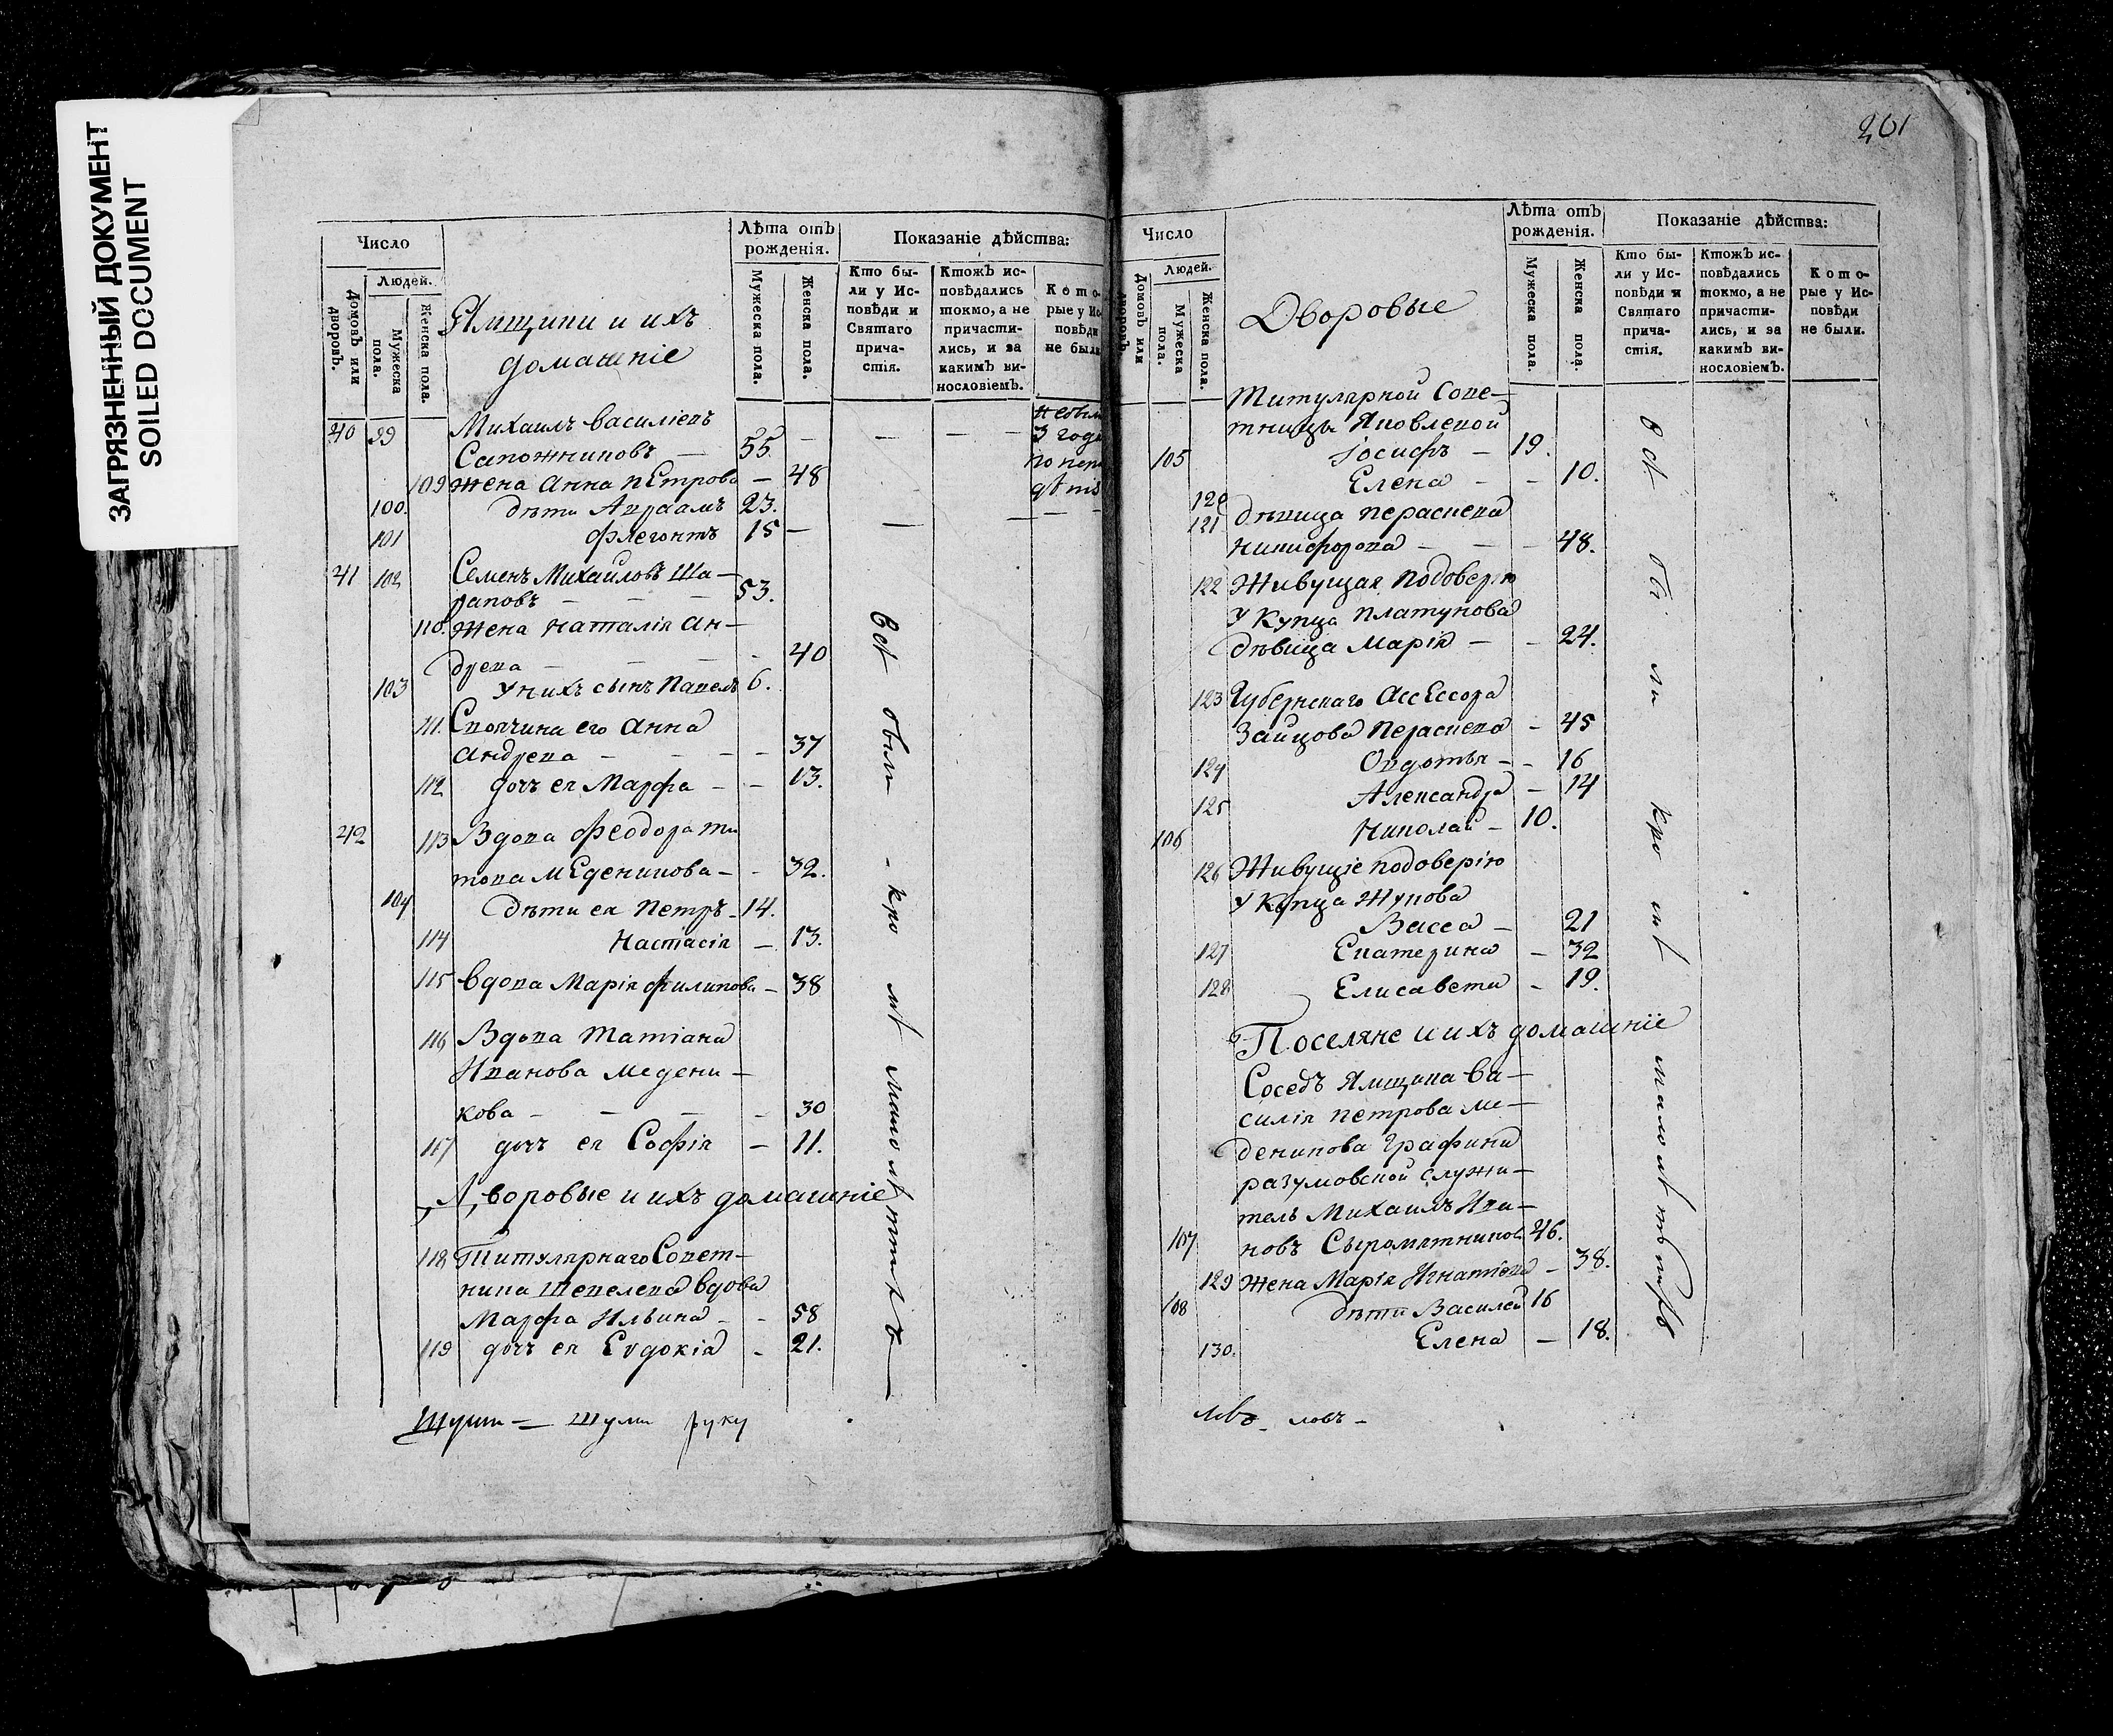 ЗАГРЯЗНЕННЫЙ ДОКУМЕНТ
SOILED DOCUMENT
Число
Людей.
Домовъ или дворовъ.
Мужеска пола.
Женска пола.
Ямщики и ихъ
домашніе
Лѣта отъ рожденія.
Мужеска пола.
Женска пола.
Показаніе дѣйства:
Кто были у Исповѣди и Святаго причастія.
Ктожъ исповѣдались токмо, а не причастились, и за какимъ винословіемъ.
Которые у Исповѣди не были
40 99 Михаилъ Василіевъ
Сапожниковъ — 55 — — —
3 года
109 жена Анна Петрова — 48
100. дѣти Авраамъ 23.
101 Флегонтъ 15 —
41 102 Семенъ Михаиловъ Ша-
раповъ — — — 53.
110. жена Наталія Ан-
древа — — — 40
103 У нихъ сынъ Павелъ 6.
111. Своячина его Анна
Андрева — — — 37
112 дочь ея Марфа — — 13.
42 113 Вдова Феодора Ти
това Меденикова — - 32.
104 дѣти ея Петръ — 14.
114 Настасія — 13.
115 Вдова Марія Филипова — 38
116 Вдова Татіана
Иванова Медени-
кова — — — 30
117 дочь ея Софія — 11.
Дворовые и ихъ домашніе
118 Титулярнаго Совет-
ника Шевелева вдова
Марфа Ильина — - 58
119 дочь ея Евдокіа - 21.
всѣ были - кро мѣ малолѣтныхъ
руку
201
Число
Людей.
Домовъ или дворовъ.
Мужеска пола.
Женска пола.
Дворовые
Лѣта отъ рожденія.
Мужеска пола.
Женска пола.
Показаніе дѣйства:
Кто были у Исповѣди и Святаго причастія.
Ктожъ исповѣдались токмо, а не причастились, и за какимъ винословіемъ.
Которые у Исповѣди не были.
Титулярной Сове-
тницы Яковлевой
105 Іосифъ — 19.
120 Елена - - 10.
121 дѣвица Параскева
Никифорова — — - 48.
122 Живущая подоверію
У Купца Платунова
дѣвица Марія — - 24.
123 Губернскаго Ассессора
Зайцова Параскева - 45
124 Овдотья - - 16
125 Александра — 14
106 Николай — 10.
126 Живущіе подоверію
У Купца Жукова
Васса — 21
127 Екатерина — 32
128 Елисавета - 19.
Поселяне и ихъ домашніе
Соседъ Ямщика Ва-
силія Петрова Ме-
деникова Графини
разумовской служи-
тель Михаилъ Ива-
107 новъ Сыромятников 46.
129 жена Марія Игнатіева — 38.
108 дѣти Василей 16
130. Елена — 18.
всѣ бы ли кро мѣ малолѣтныхъ
ловъ —